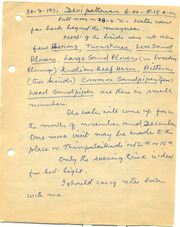 30-4-1971 Devipattanam 6.00-8.15 A.m.
Full moon on 28-4-71 - Water gone
far back beyond the mangrove
Most of the birds were not there
few Herons, Turnstones, Less Sand
Plovers, Large Sand Plovers (in breeding
Plumage) Indian Reef Heron, Bitterns
(two kinds) Common Sandpiper (few)
Wood Sandpiper are there in small
number.
The water will come up from
the months of november and december
One more visit may be made to this
place or Thirupalaikudi on
Only the evening time is ideal
for best light.
I should carry notes book
with me.